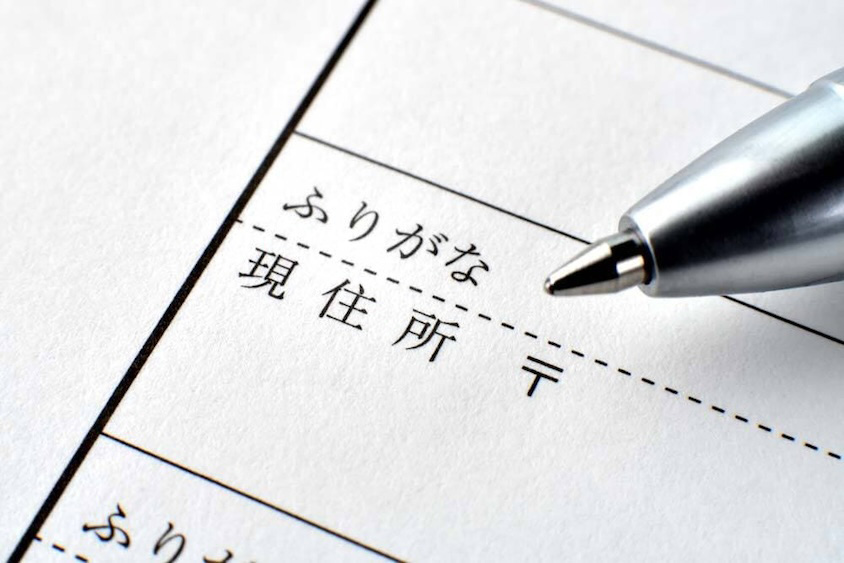 ふりがな
現住所 〒
ふりが